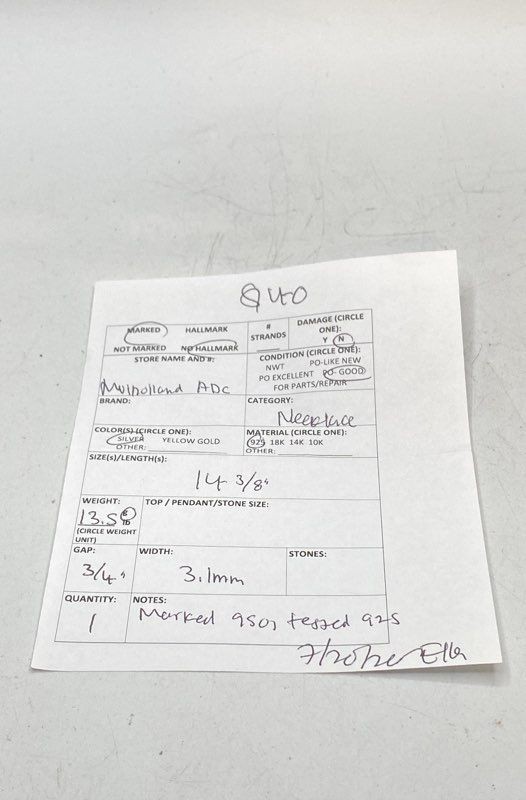 MARKED HALLMARK
NOT MARKED NO HALLMARK
# STRANDS
DAMAGE (CIRCLE ONE):
Y N
STORE NAME AND #:
Mulholland ADC
CONDITION (CIRCLE ONE):
NWT PO-LIKE NEW
PO EXCELLENT PO- GOOD
FOR PARTS/REPAIR
BRAND:
CATEGORY:
Necklace
COLOR(S) (CIRCLE ONE):
SILVER YELLOW GOLD
OTHER:
MATERIAL (CIRCLE ONE):
925 18K 14K 10K
OTHER:
SIZE(S)/LENGTH(S):
14 3/8"
WEIGHT:
13.5
(CIRCLE WEIGHT UNIT)
TOP / PENDANT/STONE SIZE:
GAP:
3/4"
WIDTH:
3.1mm
STONES:
QUANTITY:
1
NOTES:
Marked 950, tested 925
Ella